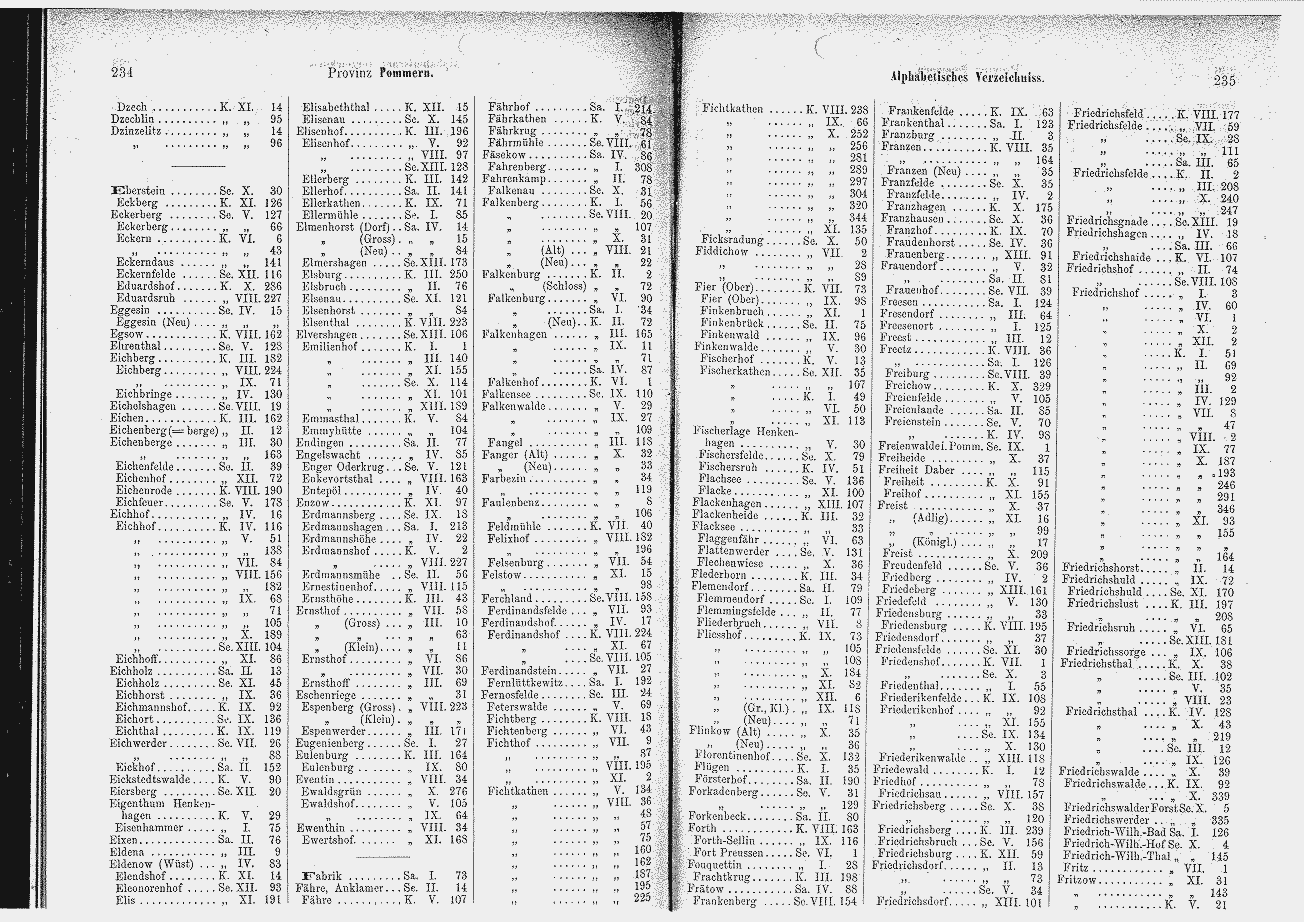 234
Provinz Pommern.
Dzech .......... K. XI. 14
Dzechlin ......... „ „ 95
Dzinzelitz ....... „ „ 14
„ .......... „ „ 96
Eberstein ....... Se. X. 30
Eckberg ........ K. XI. 126
Eckerberg ....... Se. V. 127
Eckerberg ....... „ „ 66
Eckern ......... K. VI. 6
„ ............ „ „ 43
Eckerndaus ...... „ „ 141
Eckernfelde ..... Se. XII. 116
Eduardshof ...... K. X. 286
Eduardsruh ...... „ VIII. 227
Eggesin ........ Se. IV. 15
Eggesin (Neu) ... „ „ „
Egsow .......... K. VIII. 162
Ehrenthal ....... Se. V. 128
Eichberg ........ K. III. 182
Eichberg ........ „ VIII. 224
„ ......... „ IX. 71
Eichbringe ...... „ IV. 130
Eichelshagen .... Se. VIII. 19
Eichen .......... K. III. 162
Eichenberg (= berge) „ II. 12
Eichenberge ...... „ III. 30
„ ......... „ „ 163
Eichenfelde ..... Se. II. 39
Eichenhof ....... „ XII. 72
Eichenrode ...... K. VIII. 190
Eichfeuer ....... Se. V. 178
Eichhof ......... „ IV. 16
Eichhof ......... K. IV. 116
„ ......... „ V. 51
„ ......... „ „ 138
„ ......... „ VII. 84
„ ......... „ VIII. 156
„ ......... „ „ 182
„ ......... „ IX. 68
„ ......... „ „ 71
„ ......... „ „ 105
„ ......... „ X. 189
„ ......... Se. XIII. 104
Eichhoff ........ K. XI. 86
Eichholz ........ Sa. II. 13
Eichholz ........ Se. XI. 45
Eichhorst ....... „ IX. 36
Eichmannshof .... K. IX. 92
Eichort ......... Se. IX. 136
Eichthal ........ K. IX. 119
Eichwerder ...... Se. VII. 26
„ ......... „ „ 88
Eickhof ......... Sa. II. 152
Eickstedtswalde .. K. V. 90
Eiersberg ....... Se. XII. 20
Eigenthum Henken-
hagen ......... K. V. 29
Eisenhammer ..... „ I. 75
Eixen ........... Sa. II. 76
Eldena .......... „ III. 9
Eldenow (Wüst) .. „ IV. 83
Elendshof ....... K. XI. 14
Eleonorenhof .... Se. XII. 93
Elis ............ „ XI. 191
Elisabeththal .... K. XII. 15
Elisenau ........ Se. X. 145
Elisenhof ....... K. III. 196
Elisenhof ....... „ V. 92
„ ........ „ VIII. 97
„ ........ Se. XIII. 128
Ellerberg ....... K. III. 142
Ellerhof ........ Sa. II. 141
Ellerkathen ..... K. IX. 71
Ellermühle ...... Se. I. 85
Elmenhorst (Dorf) .. Sa. IV. 14
„ (Gross) ... „ „ 15
„ (Neu) ... „ „ 84
Elmershagen .... Se. XIII. 173
Elsburg ......... K. III. 250
Elsbruch ........ „ II. 76
Elsenau ......... Se. XI. 121
Elsenhorst ...... „ „ 84
Elsenthal ....... K. VIII. 223
Elvershagen ..... Se. XIII. 106
Emilienhof ...... K. I. 1
„ ........ „ III. 140
„ ........ „ XI. 155
„ ........ Se. X. 114
„ ........ „ XI. 101
„ ........ „ XIII. 189
Emmasthal ...... K. V. 84
Emmyhütte ...... „ „ 104
Endingen ....... Sa. II. 77
Engelswacht .... „ IV. 85
Enger Oderkrug .. Se. V. 121
Enkevortsthal ... „ VIII. 163
Entepöl ......... „ IV. 40
Enzow .......... K. XI. 97
Erdmannsberg ... Se. IX. 18
Erdmannshagen .. Sa. I. 213
Erdmannshöhe ... „ IV. 22
Erdmannshof .... K. V. 2
„ ........ „ VIII. 227
Erdmannsmühe .. Se. II. 56
Ernestinenhof ... „ VIII. 115
Ernsthöhe ...... K. III. 43
Ernsthof ........ „ VII. 58
„ (Gross) ... „ III. 10
„ „ ... „ „ 63
„ (Klein) ... „ „ 11
Ernsthof ........ „ VI. 86
„ ........ „ VII. 30
Ernsthoff ....... „ III. 69
Eschenriege ..... „ „ 31
Espenberg (Gross) .. „ VIII. 223
„ (Klein) ... „ „ „
Espenwerder .... „ III. 171
Eugenienberg ... Se. I. 27
Eulenburg ...... K. III. 164
Eulenburg ...... „ IX. 80
Eventin ........ „ VIII. 34
Ewaldsgrün ..... „ X. 276
Ewaldshof ...... „ V. 105
„ ........ „ IX. 64
Ewenthin ....... „ VIII. 34
Ewertshof ....... „ XI. 168
Fabrik .......... Sa. I. 73
Fähre, Anklamer ... Se. II. 14
Fähre .......... K. V. 107
Fährhof ........ Sa. I. 214
Fährkathen ..... K. V. 84
Fährkrug ....... „ „ 78
Fährmühle ...... Se. VIII. 61
Fäsekow ........ Sa. IV. 86
Fahrenberg ..... „ I. 308
Fahrenkamp .... „ II. 78
Falkenau ....... Se. X. 31
Falkenberg ..... K. I. 56
„ ........ Se. VIII. 20
„ ........ „ „ 107
„ ........ „ X. 31
„ (Alt) ... „ VIII. 21
„ (Neu) ... „ „ 22
Falkenburg ..... K. II. 2
„ (Schloss) ... „ „ 72
Falkenburg ..... „ VI. 90
„ ........ Sa. I. 34
„ (Neu) .. K. II. 72
Falkenhagen .... „ III. 165
„ ........ „ IX. 11
„ ........ „ „ 71
„ ........ Sa. IV. 87
Falkenhof ...... K. VI. 1
Falkensee ...... Se. IX. 110
Falkenwalde .... „ V. 29
„ ........ „ IX. 27
„ ........ „ „ 109
Fangel ......... „ III. 118
Fanger (Alt) .... „ X. 32
„ (Neu) .... „ „ 33
Farbezin ....... „ „ 34
„ ........ „ „ 119
Faulenbenz ..... „ „ 8
„ ........ „ „ 106
Feldmühle ...... K. VII. 40
Felixhof ........ „ VIII. 182
„ ........ „ „ 196
Felsenburg ..... „ VII. 54
Felstow ........ „ XI. 15
„ ........ „ „ 98
Ferchland ...... Se. VIII. 158
Ferdinandsfelde .. „ VII. 93
Ferdinandshof ... „ IV. 17
Ferdinandshof ... K. VIII. 224
„ ........ „ XI. 67
„ ........ Se. VIII. 105
Ferdinandstein ... „ VII. 27
Fernlüttkewitz ... Sa. I. 192
Fernosfelde ..... Se. III. 24
Feterswalde .... „ V. 69
Fichtberg ....... K. VIII. 18
Fichtenberg .... „ VI. 43
Fichthof ....... „ VII. 9
„ ........ „ „ 87
„ ........ „ VIII. 195
„ ........ „ XI. 2
Fichtkathen .... „ V. 134
„ ........ „ VIII. 36
„ ........ „ „ 48
„ ........ „ „ 57
„ ........ „ „ 75
„ ........ „ „ 160
„ ........ „ „ 162
„ ........ „ „ 187
„ ........ „ „ 195
„ ........ „ „ 225
Alphabetisches Verzeichniss.
235
Fichtkathen .... K. VIII. 238
„ ........ „ IX. 66
„ ........ „ X. 252
„ ........ „ „ 256
„ ........ „ „ 281
„ ........ „ „ 289
„ ........ „ „ 297
„ ........ „ „ 304
„ ........ „ „ 320
„ ........ „ „ 344
„ ........ „ XI. 135
Ficksradung .... Se. X. 50
Fiddichow ...... „ VII. 2
„ ........ „ „ 28
„ ........ „ „ 89
Fier (Ober) ..... K. VII. 73
Fier (Ober) ..... „ IX. 98
Finkenbruch .... „ XI. 1
Finkenbrück .... Se. II. 75
Finkenwald ..... „ IX. 96
Finkenwalde .... „ V. 30
Fischerhof ...... K. V. 13
Fischerkathen ... Se. XII. 35
„ ........ „ „ 167
„ ........ K. I. 49
„ ........ „ VI. 50
„ ........ „ XI. 113
Fischerlage Henken-
hagen ......... „ V. 30
Fischersfelde .... Se. X. 79
Fischersruh ..... K. IV. 51
Flachsee ....... Se. V. 136
Flacke ......... „ XI. 100
Flackenhagen ... „ XIII. 107
Flackenheide ... K. III. 32
Flacksee ....... „ „ 33
Flaggenfähr .... „ VI. 63
Flattenwerder ... Se. V. 131
Flechenwiese ... „ X. 36
Flederborn ..... K. III. 34
Flemendorf ..... Sa. II. 79
Flemmendorf ... Se. I. 109
Flemmingsfelde .. „ II. 77
Fliederbruch .... „ VII. 8
Fliesshof ....... K. IX. 73
„ ........ „ „ 105
„ ........ „ „ 108
„ ........ „ X. 184
„ ........ „ XI. 82
„ ........ „ XII. 6
„ (Gr., Kl.) . „ IX. 118
„ (Neu) .... „ „ 71
Flinkow (Alt) .... „ X. 35
„ (Neu) .... „ „ 36
Florentinenhof ... Se. X. 132
Flügen ......... K. I. 35
Försterhof ...... Sa. II. 190
Forkadenberg ... Se. V. 31
„ ........ „ „ 129
Forkenbeck ..... Sa. II. 80
Forth .......... K. VIII. 163
Forth-Sellin ..... „ IX. 116
Fort Preussen ... Se. VI. 1
Fouquettin ...... „ I. 28
Frachtkrug ..... K. III. 198
Frätow ......... Sa. IV. 88
Frankenberg .... Se. VIII. 154
Frankenfelde ... K. IX. 63
Frankenthal .... Sa. I. 123
Franzburg ...... „ II. 3
Franzen ........ K. VIII. 35
„ ........ „ „ 164
Franzen (Neu) ... „ „ 35
Franzfelde ...... Se. X. 35
Franzfelde ...... „ IV. 2
Franzhagen ..... K. X. 175
Franzhausen .... Se. X. 36
Franzhof ....... K. IX. 70
Fraudenhorst ... Se. IV. 36
Frauenberg ..... „ XIII. 91
Frauendorf ..... „ V. 32
„ ........ Sa. II. 81
Frauenhof ...... Se. VII. 39
Freesen ........ Sa. I. 124
Fresendorf ...... „ III. 64
Freesenort ...... „ I. 125
Freest ......... „ III. 12
Freetz ......... K. VIII. 36
„ ........ Sa. I. 126
Freiburg ....... Se. VIII. 39
Freichow ....... K. X. 329
Freienfelde ..... „ V. 105
Freienlande ..... Sa. II. 85
Freienstein ..... Se. V. 70
„ ........ K. IV. 98
Freienwalde i. Pomm. Se. IX. 1
Freiheide ....... „ X. 37
Freiheit Daber ... „ „ 115
Freiheit ........ K. X. 91
Freihof ......... „ XI. 155
Freist .......... „ X. 37
„ (Adlig) ..... „ XI. 16
„ „ ..... „ „ 99
„ (Königl.) ... „ „ 17
Freist .......... „ X. 209
Freudenfeld .... Se. V. 36
Friedberg ...... „ IV. 2
Friedeberg ..... „ XIII. 161
Friedefeld ...... „ V. 130
Friedensburg ... „ „ 33
Friedensburg ... K. VIII. 195
Friedensdorf .... „ „ 37
Friedensfelde ... Se. XI. 30
Friedenshof ..... K. VII. 1
„ ........ Se. X. 3
Friedenthal ..... „ I. 55
Friederikenfelde .. K. IX. 108
Friederikenhof ... „ „ 92
„ ........ „ XI. 155
„ ........ Se. IX. 134
„ ........ „ X. 130
Friederikenwalde .. „ XII. 118
Friedewald ..... K. I. 12
Friedhof ....... „ „ 78
Friedrichsau .... „ VIII. 157
Friedrichsberg ... Se. X. 38
„ ........ „ „ 120
Friedrichsberg ... K. III. 239
Friedrichsbruch .. Se. V. 156
Friedrichsburg ... K. XII. 59
Friedrichsdorf ... „ II. 13
„ ........ „ „ 73
„ ........ Se. V. 34
Friedrichsdorf ... „ XIII. 101
Friedrichsfeld .... K. VIII. 177
Friedrichsfelde ... „ VII. 59
„ ..... Se. IX. 28
„ ..... „ „ 111
„ ..... Sa. III. 65
Friedrichsfelde ... K. II. 2
„ ..... „ III. 208
„ ..... „ X. 240
„ ..... „ „ 247
Friedrichsgnade .. Se. XIII. 19
Friedrichshagen .. „ IV. 18
„ ..... Sa. III. 66
Friedrichshaide .. K. VI. 107
Friedrichshof .... „ II. 74
„ ..... Se. VIII. 108
Friedrichshof .... „ I. 3
„ ..... „ IV. 60
„ ..... „ VI. 1
„ ..... „ X. 2
„ ..... „ XII. 2
„ ..... K. I. 51
„ ..... „ II. 69
„ ..... „ „ 92
„ ..... „ III. 2
„ ..... „ IV. 129
„ ..... „ VII. 8
„ ..... „ „ 47
„ ..... „ VIII. 2
„ ..... „ IX. 77
„ ..... „ X. 187
„ ..... „ „ 193
„ ..... „ „ 246
„ ..... „ „ 291
„ ..... „ „ 346
„ ..... „ XI. 93
„ ..... „ „ 155
„ ..... „ „ „
„ ..... „ „ 164
Friedrichshorst ... „ II. 14
Friedrichshuld ... „ IX. 72
Friedrichshuld ... Se. XI. 170
Friedrichslust .... K. III. 197
„ ..... „ „ 208
Friedrichsruh .... „ VI. 65
„ ..... Se. XIII. 181
Friedrichssorge ... „ IX. 106
Friedrichsthal .... K. X. 38
„ ..... Se. III. 102
„ ..... „ V. 35
„ ..... „ VIII. 23
Friedrichsthal .... K. IV. 128
„ ..... „ X. 43
„ ..... „ „ 219
„ ..... Se. III. 12
„ ..... „ IX. 126
Friedrichswalde .. „ X. 39
Friedrichswalde .. K. IX. 92
„ ..... „ X. 339
Friedrichswalder Forst Se. X. 5
Friedrichswerder .. „ „ 335
Friedrich-Wilh.-Bad Sa. I. 126
Friedrich-Wilh.-Hof Se. X. 4
Friedrich-Wilh.-Thal „ „ 145
Fritz ........... „ VII. 1
Fritzow ......... „ XI. 31
„ ..... „ „ 143
„ ..... K. V. 21